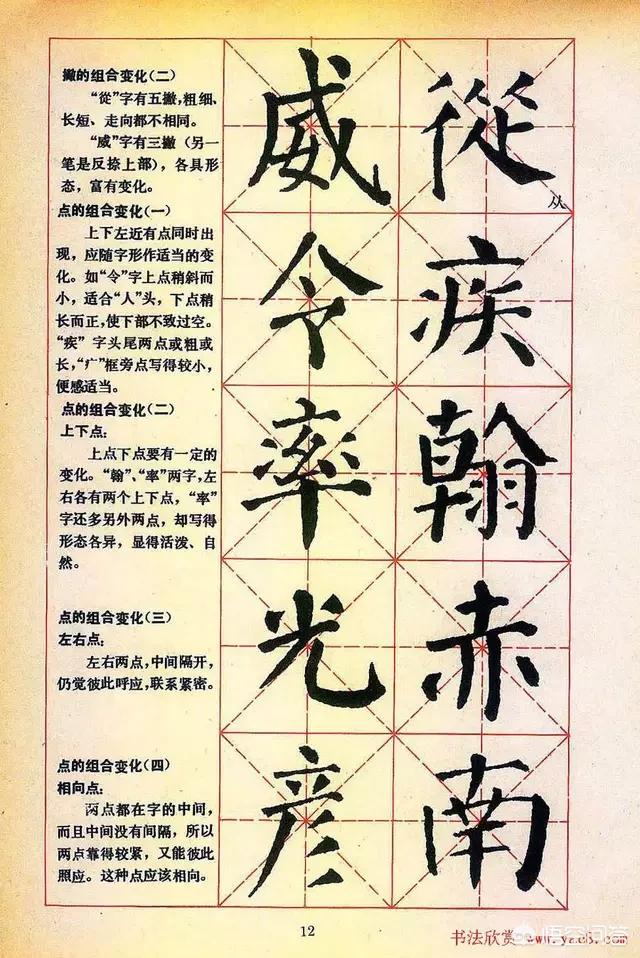 撇的组合变化(二)
“從”字有五撇,粗细、
长短、走向都不相同。
“威”字有三撇(另一
笔是反捺上部),各具形
态,富有变化。
点的组合变化(一)
上下左近有点同时出
现,应随字形作适当的变
化。如“令”字上点稍斜而
小,适合“人”头,下点稍
长而正,使下部不致过空。
“疾”字头尾两点或粗或
长,“疒”框旁点写得较小,
便感适当。
点的组合变化(二)
上下点:
上点下点要有一定的
变化。“翰”、“率”两字,左
右各有两个上下点,“率”
字还多另外两点,却写得
形态各异,显得活泼、自
然。
点的组合变化(三)
左右点:
左右两点,中间隔开,
仍觉彼此呼应,联系紧密。
点的组合变化(四)
相向点:
两点都在字的中间,
而且中间没有间隔,所以
两点靠得较紧,又能彼此
照应。这种点应该相向。
威 從
从
令 疾
率 翰
光 赤
彦 南
12
书法欣赏 www.yac8.com
悟空问答